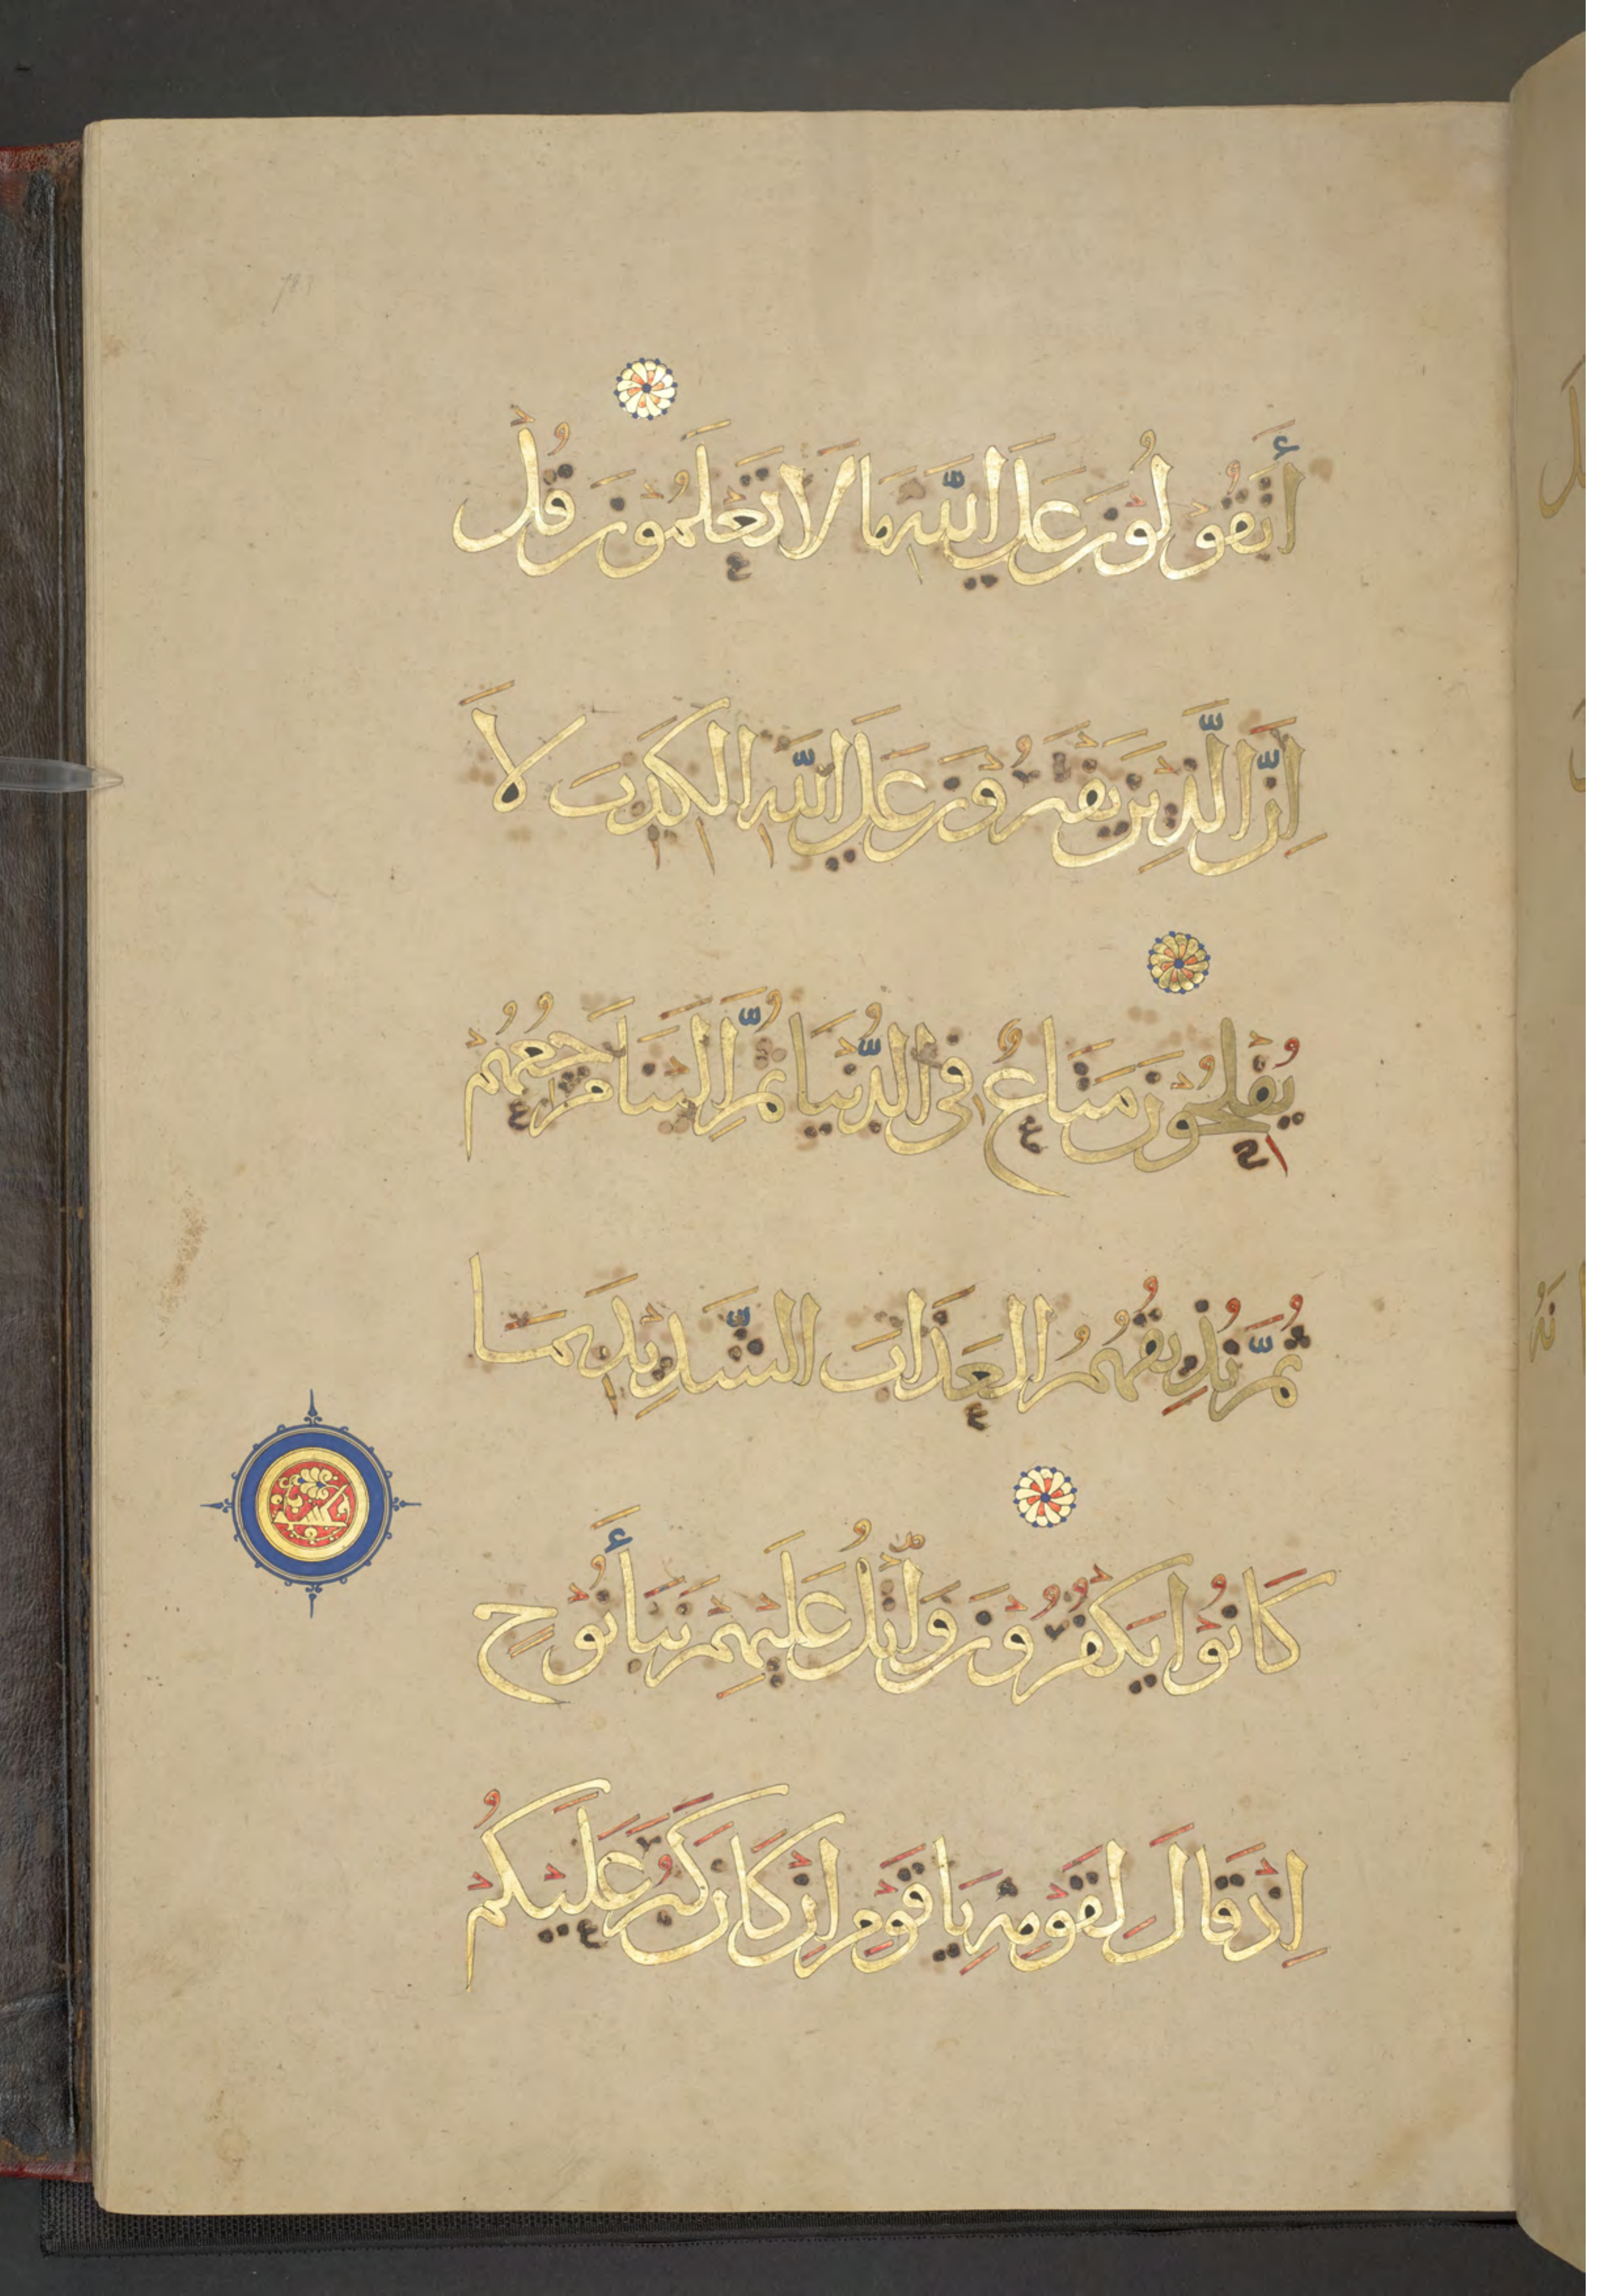 أَتَقُوْلُوْنَ عَلَى اللّٰهِ مَا لَا تَعْلَمُوْنَ قُلْ
اِنَّ الَّذِيْنَ يَفْتَرُوْنَ عَلَى اللّٰهِ الْكَذِبَ لَا
يُفْلِحُوْنَ مَتَاعٌ فِى الدُّنْيَا ثُمَّ اِلَيْنَا مَرْجِعُهُمْ
ثُمَّ نُذِيْقُهُمُ الْعَذَابَ الشَّدِيْدَ بِمَا
كَانُوْا يَكْفُرُوْنَ وَاتْلُ عَلَيْهِمْ نَبَأَ نُوْحٍ
اِذْ قَالَ لِقَوْمِهِ يَا قَوْمِ اِنْ كَانَ كَبُرَ عَلَيْكُمْ